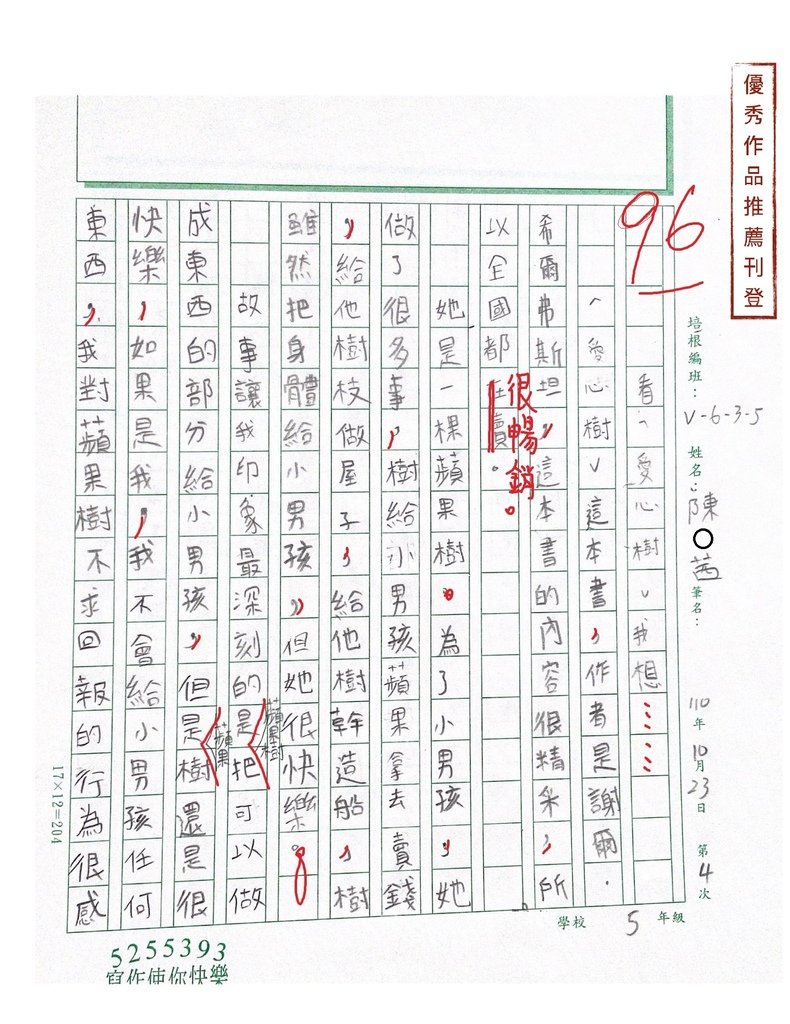 優秀作品推薦刊登
96
培根編班：V-6-3-5 姓名：陳○茜 筆名：
110年10月23日 第4次
看﹁愛心樹﹂我想……
﹁愛心樹﹂這本書，作者是謝爾．
希爾弗斯坦，這本書的內容很精采，所
以全國都 。
很暢銷。
她是一棵蘋果樹。為了小男孩，她
做了很多事，樹給小男孩蘋果拿去賣錢
，給他樹枝做小屋子，給他樹幹造船，樹
雖然把身體給小男孩，但她很快樂。
故事讓我印象最深刻的是把可以做
蘋果樹
成東西的部分給小男孩，但是樹還是很
蘋果
快樂，如果是我，我不會給小男孩任何
東西，我對蘋果樹不求回報的行為很感
17×12=204
學校 5 年級
5255393
寫作使你快樂